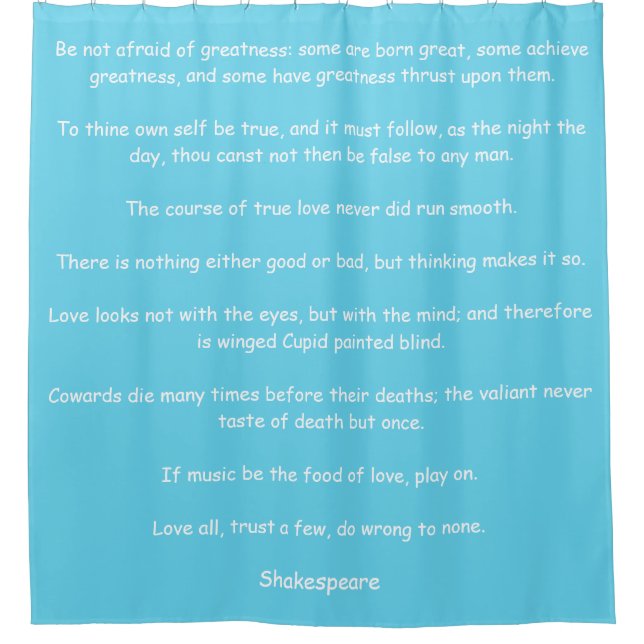 Be not afraid of greatness: some are born great, some achieve
greatness, and some have greatness thrust upon them.
To thine own self be true, and it must follow, as the night the
day, thou canst not then be false to any man.
The course of true love never did run smooth.
There is nothing either good or bad, but thinking makes it so.
Love looks not with the eyes, but with the mind; and therefore
is winged Cupid painted blind.
Cowards die many times before their deaths; the valiant never
taste of death but once.
If music be the food of love, play on.
Love all, trust a few, do wrong to none.
Shakespeare